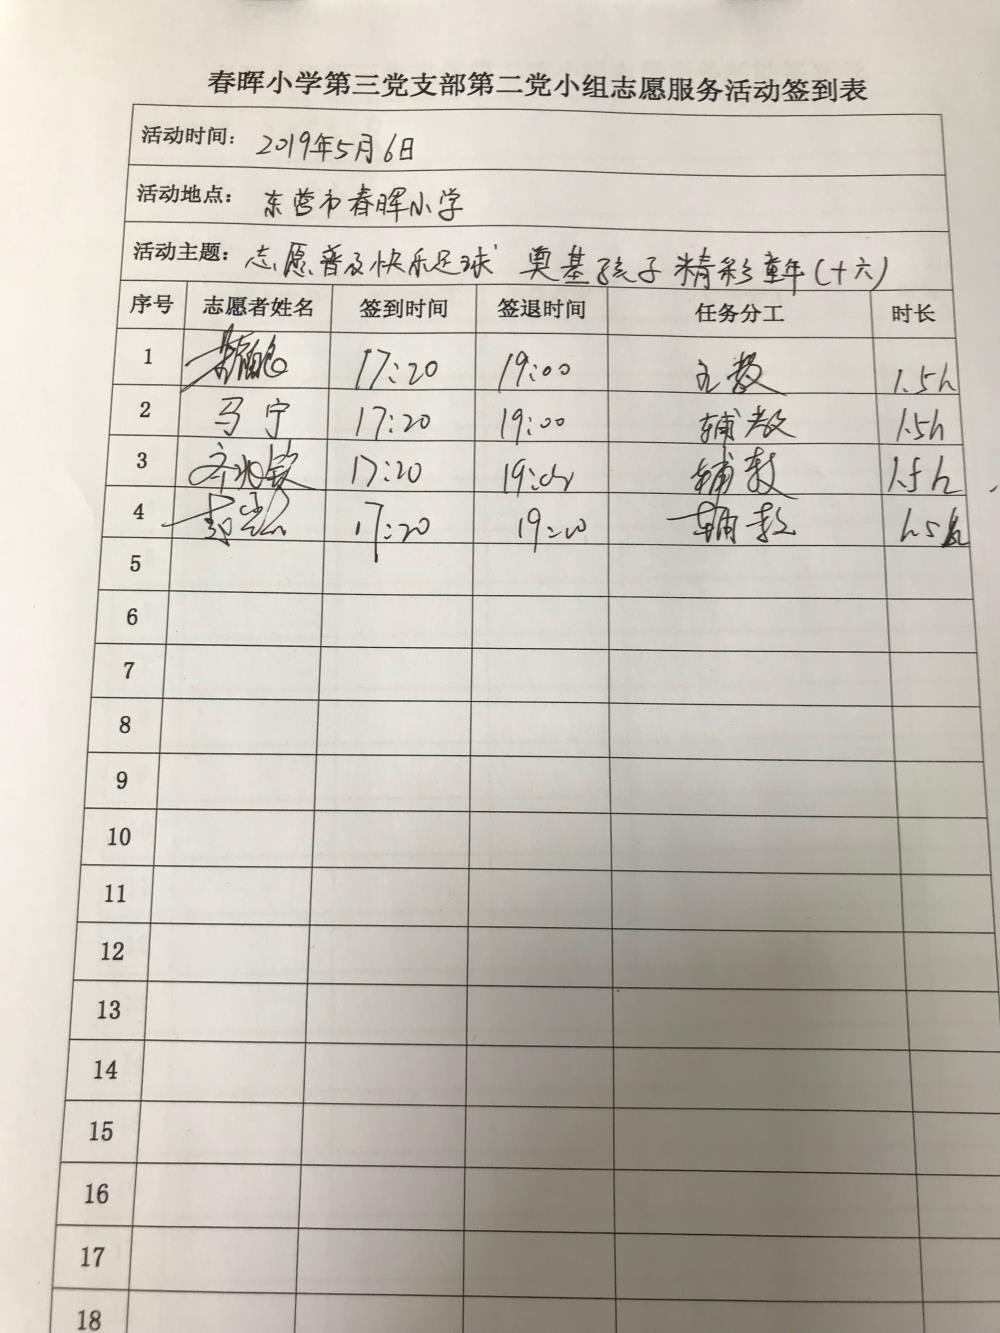 春晖小学第三党支部第二党小组志愿服务活动签到表
活动时间： 2019年5月6日
活动地点： 东营市春晖小学
活动主题： 志愿普及快乐足球 奠基孩子精彩童年(十六)
序号 志愿者姓名 签到时间 签退时间 任务分工 时长
1 17:20 19:00 主教 1.5h
2 马宁 17:20 19:00 辅教 1.5h
3 17:20 19:00 辅教 1.5h
4 17:20 19:00 辅教 1.5h
5
6
7
8
9
10
11
12
13
14
15
16
17
18